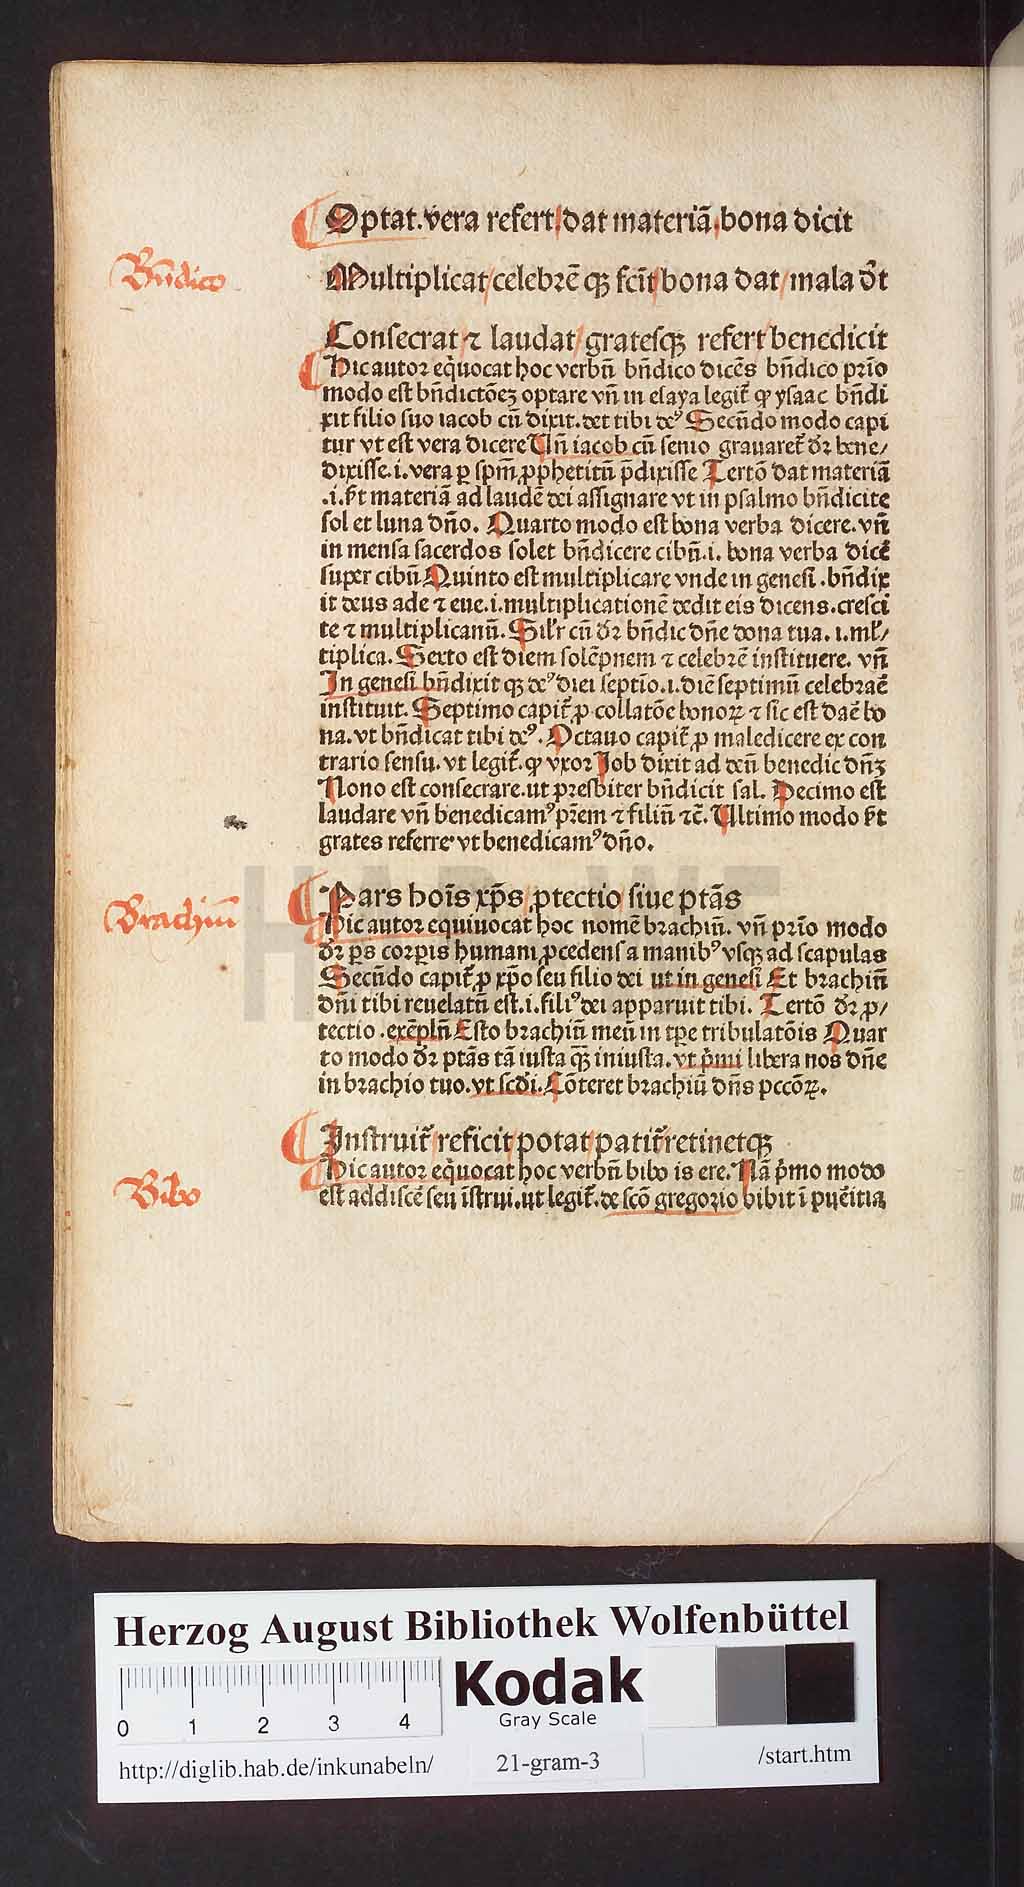 Optat. vera refert/dat materiā.bona dicit
Bn̄dico
Multiplicat/celebrē qꝫ fcīt/bona dat/mala dr̄t
Consecrat/⁊ laudat/gratesqꝫ refert benedicit
Hic autor eq̇uocat hoc verbū bn̄dico dicēs bn̄dico prīo
modo est bn̄dictōeꝫ optare vn̄ in esaya legit᷑ ꝙ ysaac bn̄di
xit filio suo iacob cū dixit.det tibi deꝰ Secūdo modo capi
tur vt est vera dicere Vn̄ iacob cū senio grauaret᷑ dr̄ bene/
dixisse.i.vera ꝑ spm̄ ꝓphetitū p̄dixisse Tertō dat materiā
.i.st materiā ad laudē dei assignare vt in psalmo bn̄dicite
sol et luna dn̄o. Quarto modo est bona verba dicere.vn̄
in mensa sacerdos solet bn̄dicere cibū.i. bona verba dicē
super cibū Quinto est multiplicare vnde in genesi.bn̄dix
it deus ade ⁊ eue.i.multiplicationē dedit eis dicens.cresci
te ⁊ multiplicanū. Silr̄ cū dr̄ bn̄dic dn̄e dona tua. i.ml̄/
tiplica. Sexto est diem solēpnem ⁊ celebrē instituere. vn̄
In genesi bn̄dixit qꝫ deꝰ diei septīo.i.diē septimū celebraē
instituit. Septimo capit᷑ ꝓ collatōe bonoꝝ ⁊ sic est daē bo
na.vt bn̄dicat tibi deꝰ. Octauo capit᷑ ꝓ maledicere ex con
trario sensu.vt legit᷑.ꝙ vxor Job dixit ad eū benedic dn̄ꝫ
Nono est consecrare.ut presbiter bn̄dicit sal. Decimo est
laudare vn̄ benedicamꝰ pr̄em ⁊ filiū ⁊c̄. Ultimo modo st
grates referre vt benedicamꝰ dn̄o.
Brachiū
Pars hoīs xp̄s/ꝓtectio/siue ptās
Hic autor equiuocat hoc nomē brachiū. vn̄ prīo modo
dr̄ ps̄ corꝑis humani ꝓcedens a manibꝰ vsqꝫ ad scapulas
Secūdo capit᷑ ꝓ xp̄o seu filio dei ut in genesi Et brachiū
dn̄i tibi reuelatū est.i.filiꝰ dei apparuit tibi. Tertō dr̄ ꝓ/
tectio.exēplū Esto brachiū meū in tꝑe tribulatōis Quar
to modo dr̄ ptās tā iusta qꝫ̄ iniusta. vt p̄mi libera nos dn̄e
in brachio tuo.vt scd̄i. Cōteret brachiū dn̄s pccōꝝ.
Instruit᷑/reficit/potat/patit᷑ retinetqꝫ
Bibo
Hic autor eq̇uocat hoc verbū bibo is ere. Nā p̄mo modo
est addiscē seu īstrui.ut legit᷑.de scō gregorio bibit ī pueritia
Herzog August Bibliothek Wolfenbüttel
Kodak
Gray Scale
0 1 2 3 4
http://diglib.hab.de/inkunabeln/ 21-gram-3 /start.htm